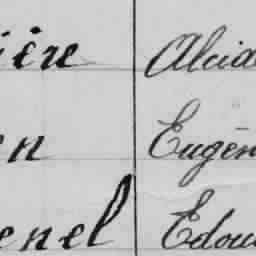 ière Alcia
en Eugèn
enel Edou